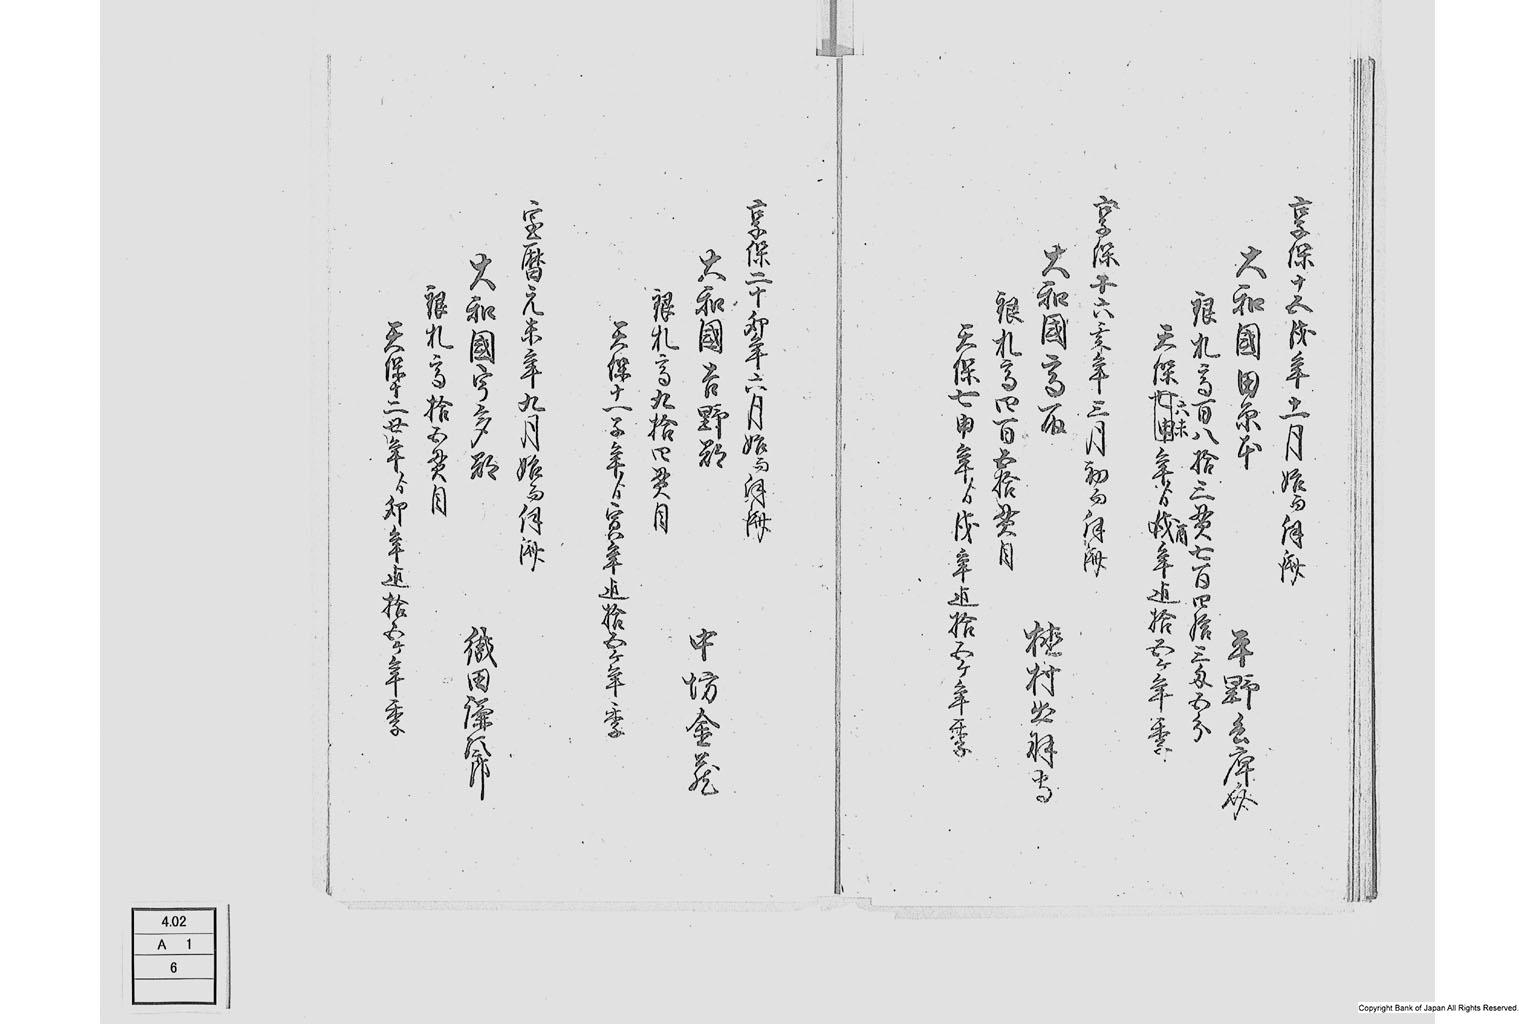 享保十五戌年十一月始而伺済
大和國田原本
平野兵庫助
銀札高百八拾三貫七百四拾三匁五分
天保七申年ゟ戌年迄拾五ケ年季
六未
酉
享保十六亥年三月初而伺済
大和國高取
植村出羽守
銀札高四百五拾貫目
天保七申年ゟ戌年迄拾五ケ年季
享保二十卯年六月始而伺済
大和國吉野郡
中坊金蔵
銀札高九拾四貫目
天保十一子年ゟ寅年迄拾五ケ年季
宝暦元未年九月始而伺済
大和國宇多郡
織田
銀札高拾五貫目
天保十二丑年ゟ卯年迄拾五ケ年季
4.02
A 1
6
Copyright Bank of Japan All Rights Reserved.